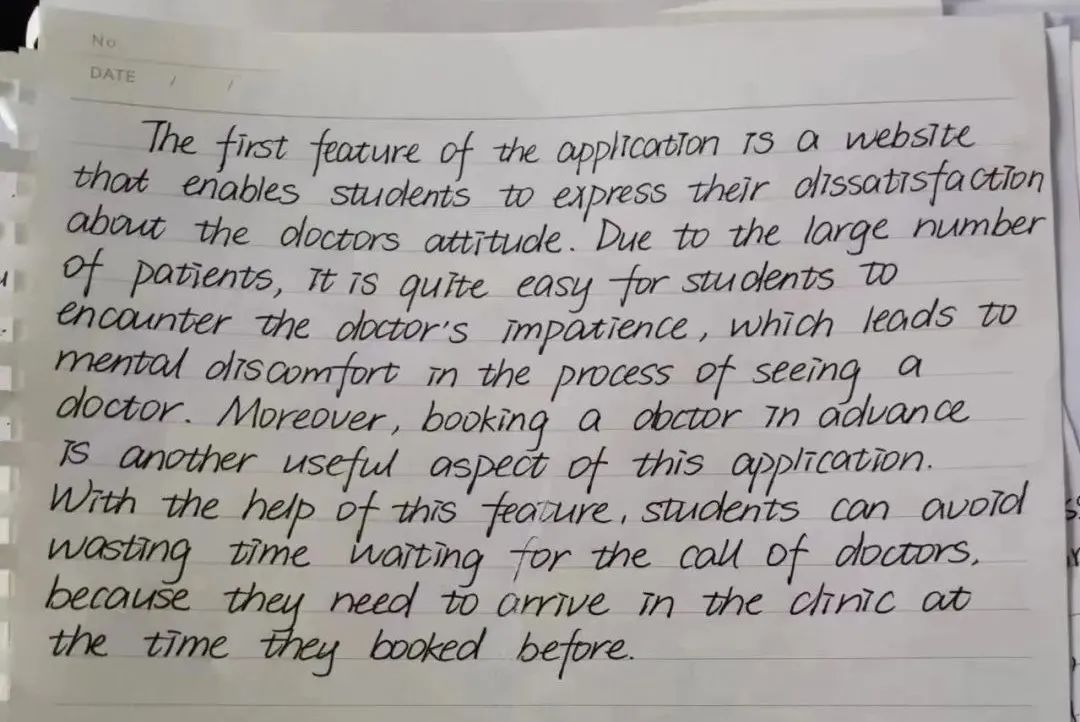 No
DATE / /
The first feature of the application is a website
that enables students to express their dissatisfaction
about the doctors attitude. Due to the large number
of patients, it is quite easy for students to
encounter the doctor's impatience, which leads to
mental discomfort in the process of seeing a
doctor. Moreover, booking a doctor in advance
is another useful aspect of this application.
With the help of this feature, students can avoid
wasting time waiting for the call of doctors,
because they need to arrive in the clinic at
the time they booked before.